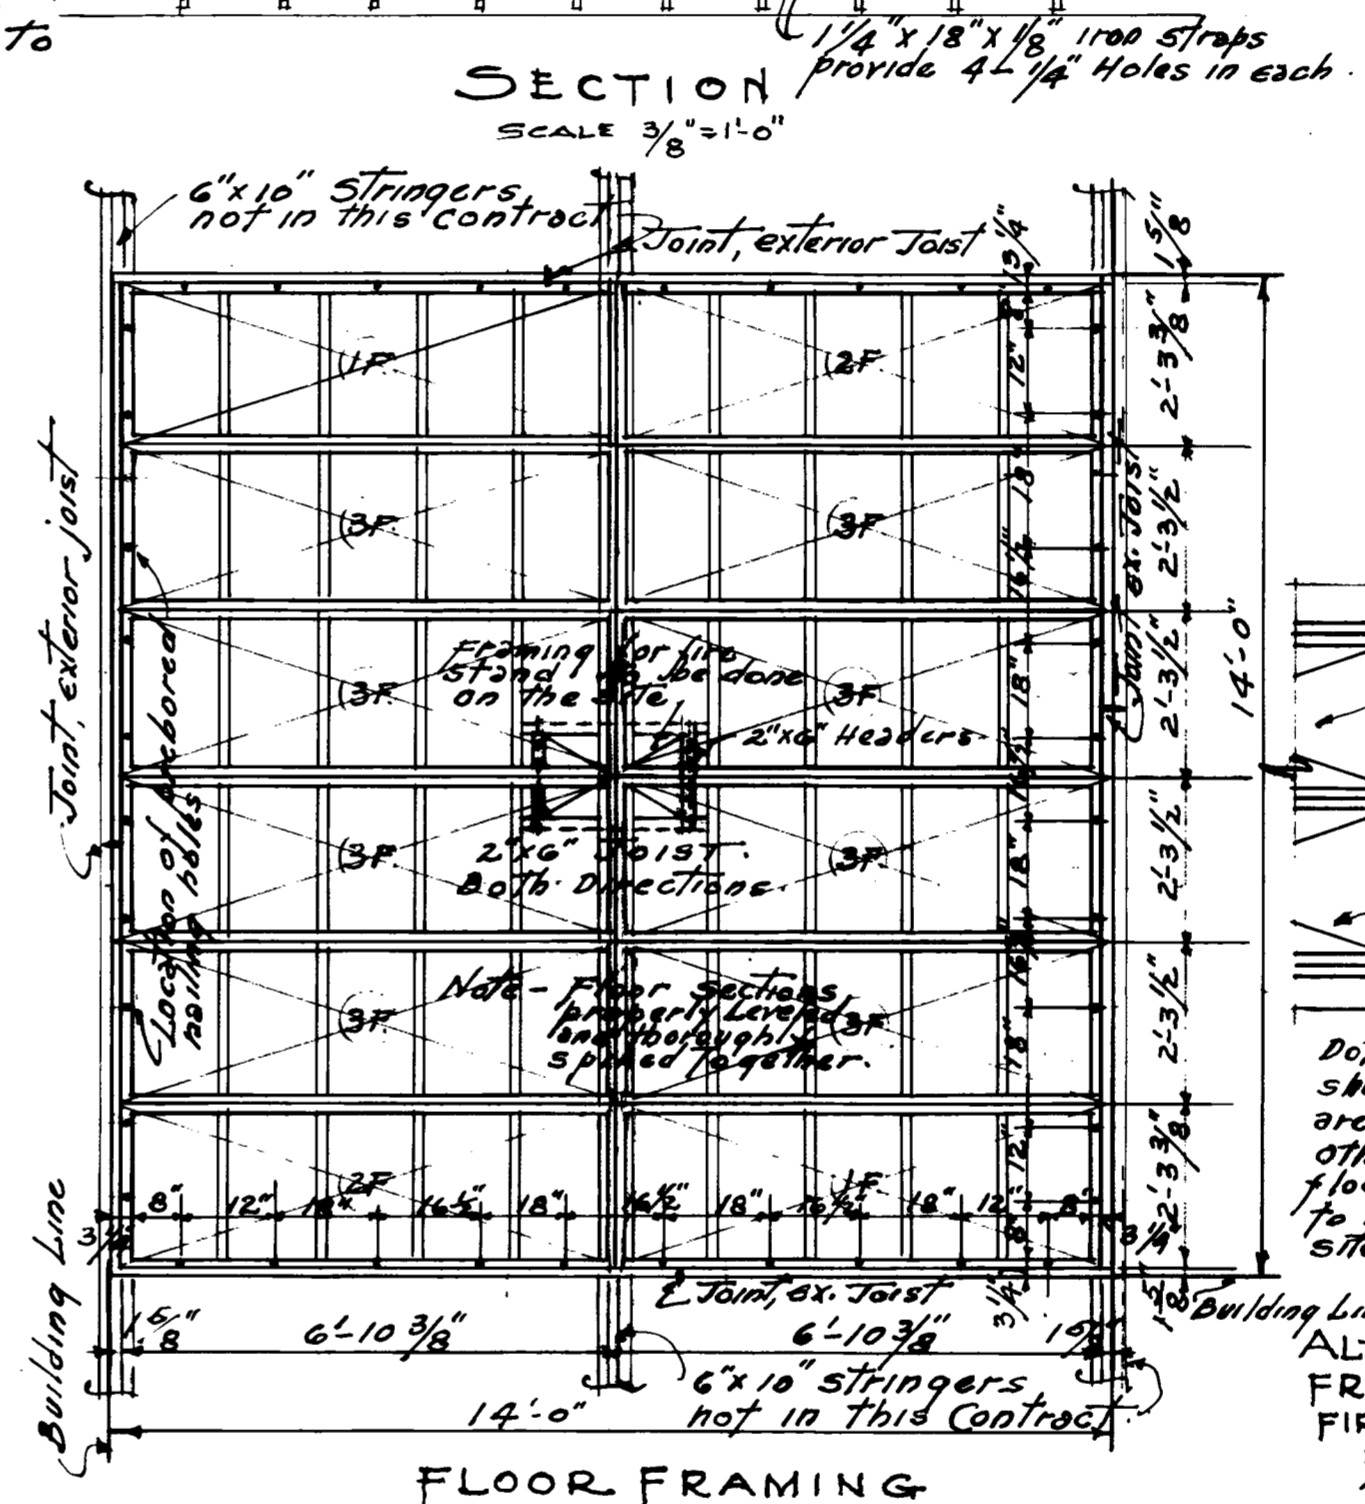 To
1 1/4" x 18" x 1/8" iron straps
provide 4- 1/4" Holes in each.
SECTION
SCALE 3/8" = 1'-0"
6" x 10" Stringers
not in this contract
Joint, exterior Joist
3 1/4"
1 5/8"
8"
12"
18"
16 1/2"
18"
18"
12"
8"
3 1/4"
2'-3 3/8"
2'-3 1/2"
2'-3 1/2"
2'-3 1/2"
2'-3 1/2"
2'-3 3/8"
1 5/8"
14'-0"
1F.
2F.
3F.
3F
3F.
3F
3F.
3F.
3F.
3F
2F
1F
Joint, exterior joist
Location of prebored
nailing holes
Framing for fire
stand to be done
on the site
2"x6" Headers
2"x6" JOIST.
Both Directions.
Joint, ex. Joist
Note - Floor Sections
properly Leveled
and thoroughly
spiked together.
8" 12" 18" 16 1/2" 18" 16 1/2" 18" 16 1/2" 18" 12" 8"
3 1/4"
3 1/4"
Joint, ex. Joist
Building Line
1 5/8" 6'-10 3/8" 6'-10 3/8"
6" x 10" stringers
not in this Contract
14'-0"
FLOOR FRAMING
are
to
Building